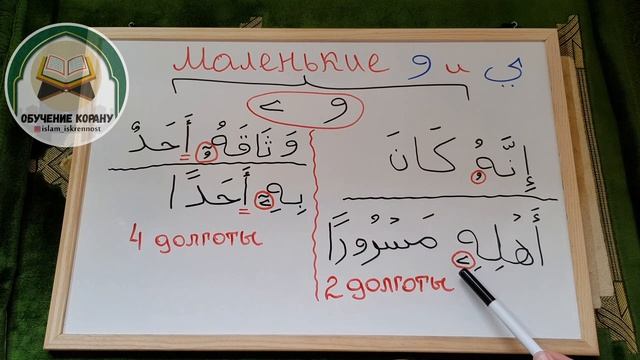 ОБУЧЕНИЕ КОРАНУ
islam_iskrennost
Маленькие و и ي
و ے
إِنَّهُۥ كَانَ
أَهْلِهِۦ مَسْرُورًا
2 долготы
وَثَاقَهُۥٓ أَحَدٌ
بِهِۦٓ أَحَدًا
4 долготы